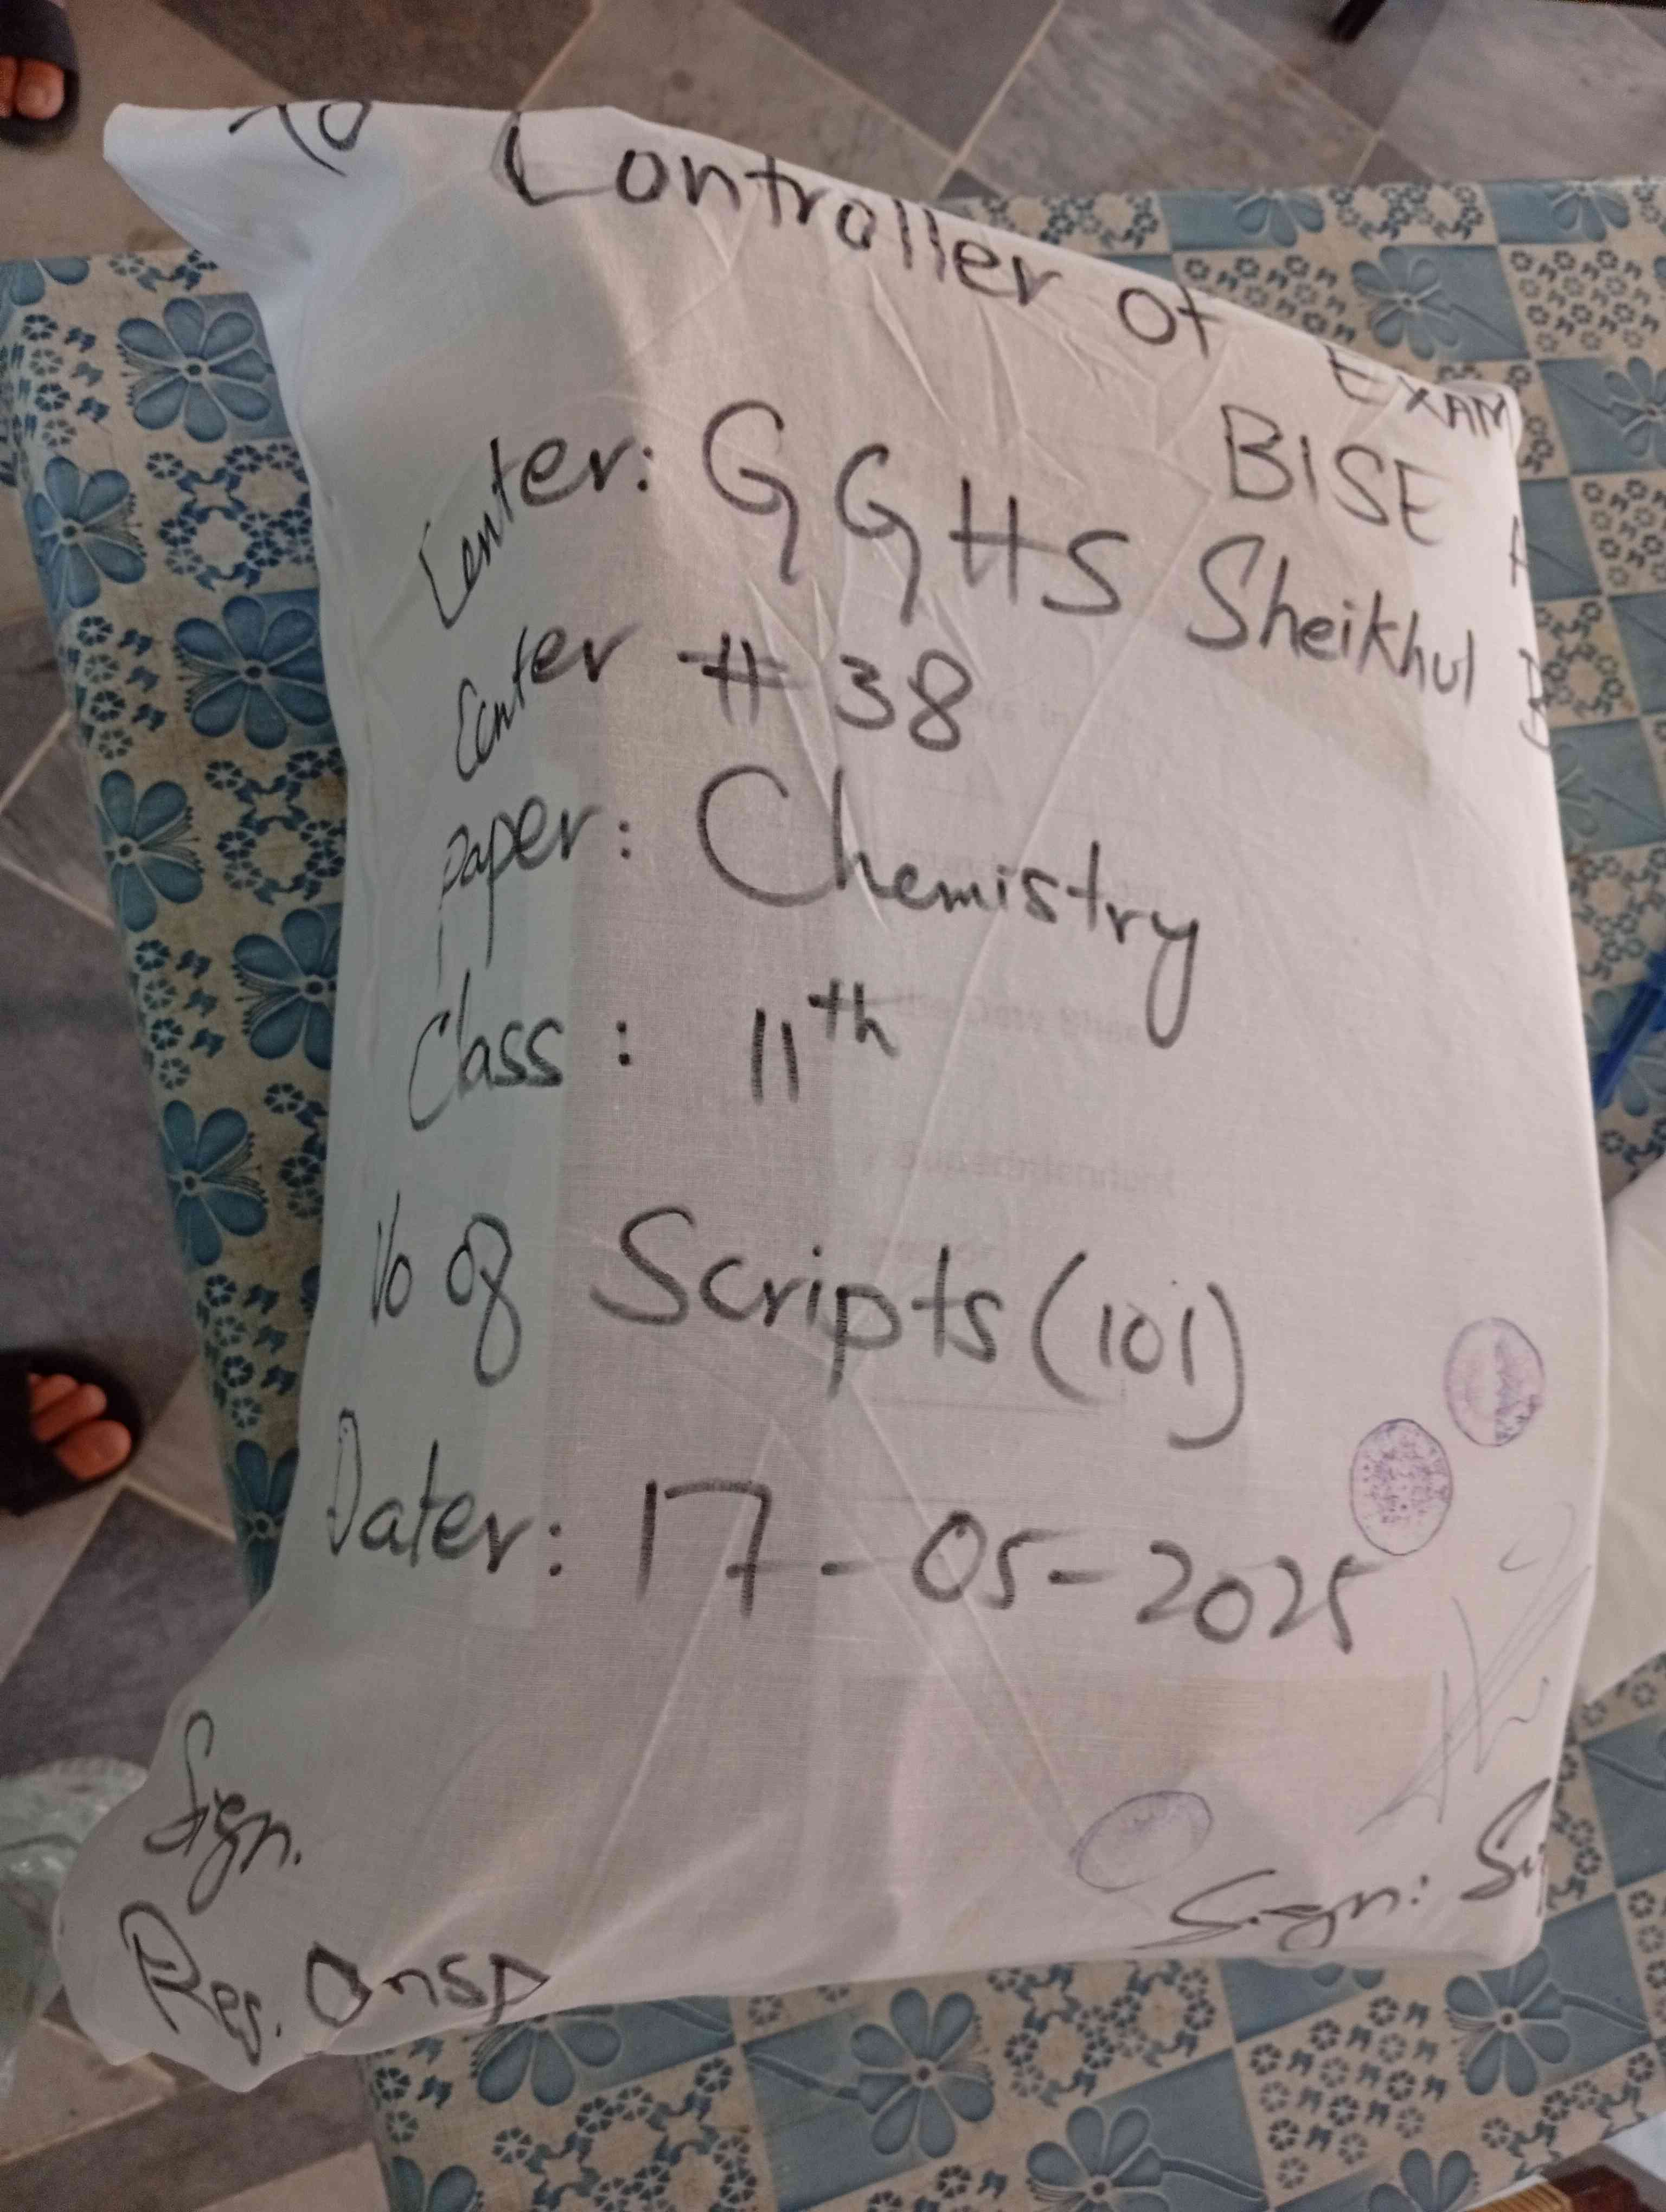 To Controller of EXAM
BISE A
Center: GGHS Sheikhul B
Center # 38
Paper: Chemistry
Class: 11th
No of Scripts (101)
Dater: 17-05-2025
Sign.
Res. Onsp
Sign: Su